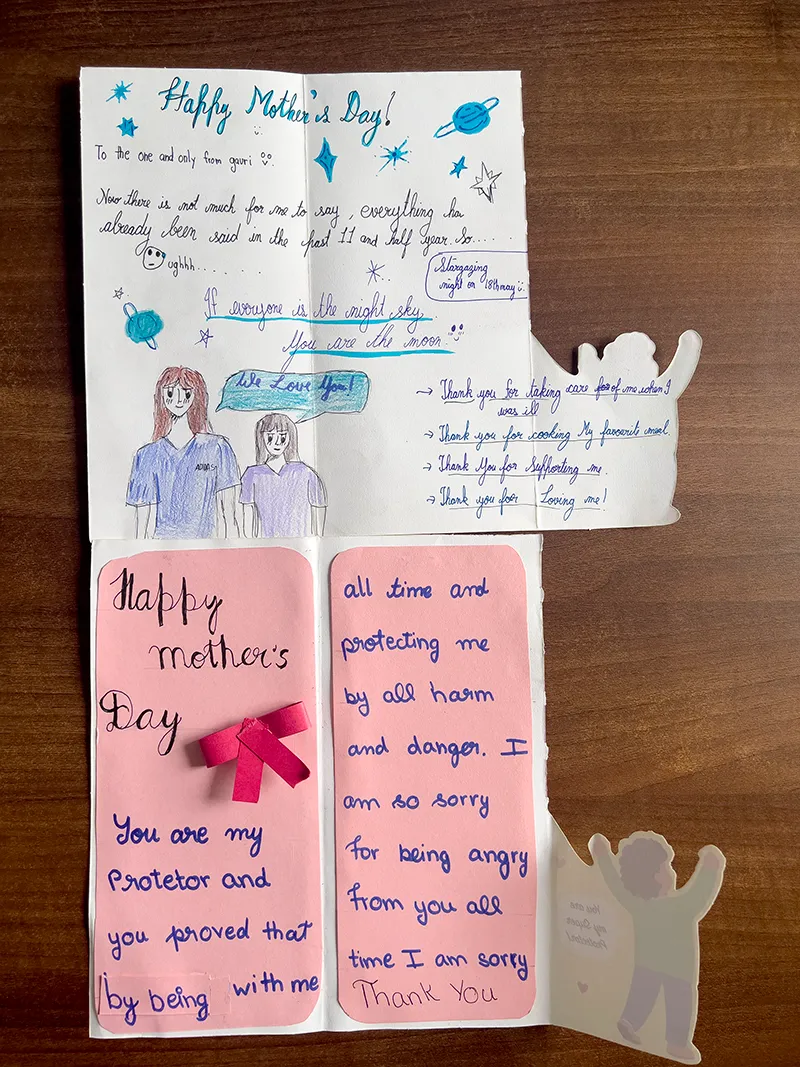 Happy Mother's Day!
To the one and only from gauri
Now there is not much for me to say, everything ha
already been said in the past 11 and half year. So.....
ughhh.......
Stargazing
night on 18th may
If everyone is the night sky
You are the moon
We Love You!
ADIDAS
→ Thank you for taking care for of me when I
was ill
→ Thank you for cooking My favourite meal.
→ Thank You for Supporting me.
→ Thank you for Loving me!
Happy
mother's
Day
You are my
Protetor and
you proved that
by being with me
all time and
protecting me
by all harm
and danger. I
am so sorry
for being angry
from you all
time I am sorry
Thank You
You are
my Super
Protector!